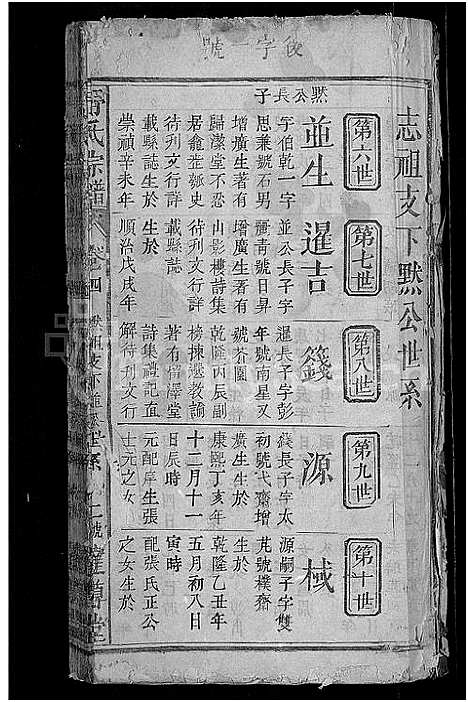 後字一號
志祖支下黙公世系
黙公長子
第六世
並生
字伯乾一字
思兼號石男
增廣生著有
歸藻堂不忝
居龕瓠史
待刊文行詳
載縣誌生於
崇禎辛未年
第七世
暹吉
並公長子字
爾青號日昇
增廣生著有
山影樓詩集
待刊文行詳
載縣誌
生於
順治戊戌年
第八世
籛
暹長子字彭
年號南星又
號芥園
乾隆丙辰副
榜揀選教諭
著有榴澤堂
詩集禮記直
解待刊文行
第九世
源
籛長子字太
初號弌齋增
廣生生於
康熙丁亥年
十二月十一
日辰時
元配庠生張
士元之女
第十世
棫
源嗣子字雙
芃號樸齋
生於
乾隆乙丑年
五月初八日
寅時
配張氏正公
之女生於
氏宗譜
卷四
黙祖支下
世系